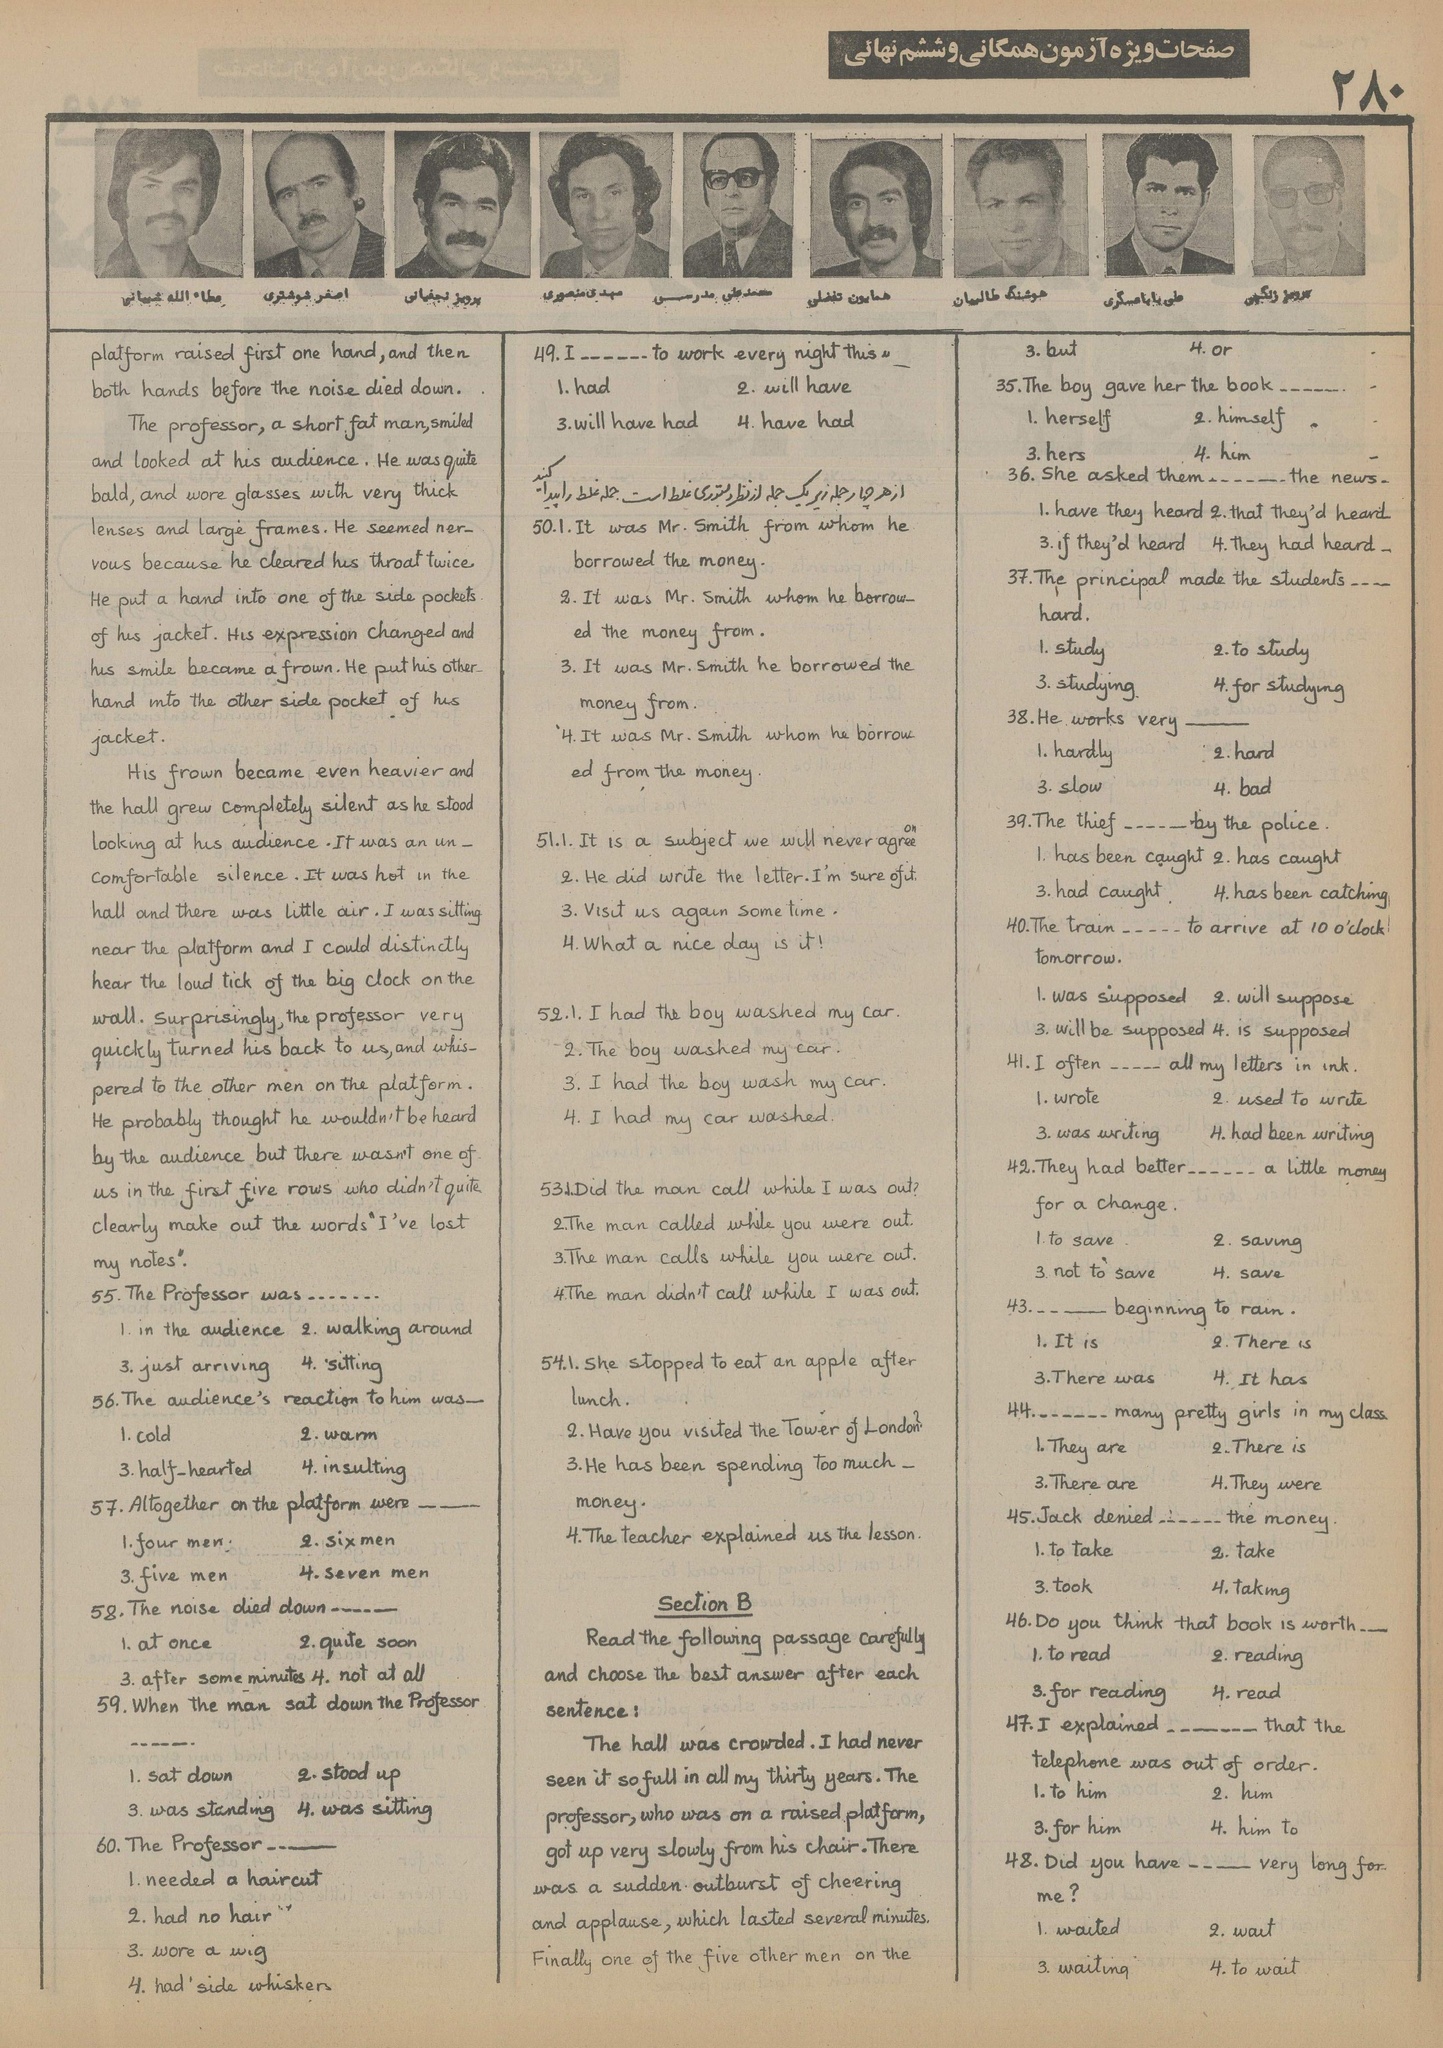 صفحات ویژه آزمون همگانی و ششم نهائی
۲۸۰
پرویز زنگنه
علی باباعسگری
هوشنگ طالبیان
همایون تفضلی
محمدعلی مدرسی
مهدی منصوری
پرویز نجفیانی
اصغر شوشتری
عطاءالله شیبانی
platform raised first one hand, and then
both hands before the noise died down.
The professor, a short fat man, smiled
and looked at his audience. He was quite
bald, and wore glasses with very thick
lenses and large frames. He seemed ner-
vous because he cleared his throat twice.
He put a hand into one of the side pockets
of his jacket. His expression changed and
his smile became a frown. He put his other-
hand into the other side pocket of his
jacket.
His frown became even heavier and
the hall grew completely silent as he stood
looking at his audience. It was an un-
comfortable silence. It was hot in the
hall and there was little air. I was sitting
near the platform and I could distinctly
hear the loud tick of the big clock on the
wall. Surprisingly, the professor very
quickly turned his back to us, and whis-
pered to the other men on the platform.
He probably thought he wouldn't be heard
by the audience but there wasn't one of
us in the first five rows who didn't quite
clearly make out the words "I've lost
my notes".
55. The Professor was -------
1. in the audience 2. walking around
3. just arriving 4. sitting
56. The audience's reaction to him was—
1. cold 2. warm
3. half-hearted 4. insulting
57. Altogether on the platform were -----
1. four men 2. six men
3. five men 4. seven men
58. The noise died down------
1. at once 2. quite soon
3. after some minutes 4. not at all
59. When the man sat down the Professor
------
1. sat down 2. stood up
3. was standing 4. was sitting
60. The Professor -----
1. needed a haircut
2. had no hair
3. wore a wig
4. had side whiskers
49. I ------ to work every night this
1. had 2. will have
3. will have had 4. have had
از هر چهار جمله زیر یک جمله از نظر دستوری غلط است جمله غلط را پیدا کنید
50.1. It was Mr. Smith from whom he
borrowed the money.
2. It was Mr. Smith whom he borrow-
ed the money from.
3. It was Mr. Smith he borrowed the
money from.
4. It was Mr. Smith whom he borrow
ed from the money.
51.1. It is a subject we will never agree on
2. He did write the letter. I'm sure of it.
3. Visit us again some time.
4. What a nice day is it!
52.1. I had the boy washed my car.
2. The boy washed my car.
3. I had the boy wash my car.
4. I had my car washed.
53.1. Did the man call while I was out?
2. The man called while you were out.
3. The man calls while you were out.
4. The man didn't call while I was out.
54.1. She stopped to eat an apple after
lunch.
2. Have you visited the Tower of London?
3. He has been spending too much -
money.
4. The teacher explained us the lesson.
Section B
Read the following passage carefully
and choose the best answer after each
sentence:
The hall was crowded. I had never
seen it so full in all my thirty years. The
professor, who was on a raised platform,
got up very slowly from his chair. There
was a sudden outburst of cheering
and applause, which lasted several minutes.
Finally one of the five other men on the
3. but 4. or
35. The boy gave her the book ------
1. herself 2. himself
3. hers 4. him
36. She asked them ------- the news-
1. have they heard 2. that they'd heard
3. if they'd heard 4. they had heard-
37. The principal made the students ----
hard.
1. study 2. to study
3. studying 4. for studying
38. He works very -----
1. hardly 2. hard
3. slow 4. bad
39. The thief ----- by the police.
1. has been caught 2. has caught
3. had caught 4. has been catching
40. The train ----- to arrive at 10 o'clock
tomorrow.
1. was supposed 2. will suppose
3. will be supposed 4. is supposed
41. I often ----- all my letters in ink.
1. wrote 2. used to write
3. was writing 4. had been writing
42. They had better ------ a little money
for a change.
1. to save 2. saving
3. not to save 4. save
43. ----- beginning to rain.
1. It is 2. There is
3. There was 4. It has
44. ------- many pretty girls in my class
1. They are 2. There is
3. There are 4. They were
45. Jack denied ------ the money.
1. to take 2. take
3. took 4. taking
46. Do you think that book is worth---
1. to read 2. reading
3. for reading 4. read
47. I explained ------- that the
telephone was out of order.
1. to him 2. him
3. for him 4. him to
48. Did you have ----- very long for
me?
1. waited 2. wait
3. waiting 4. to wait